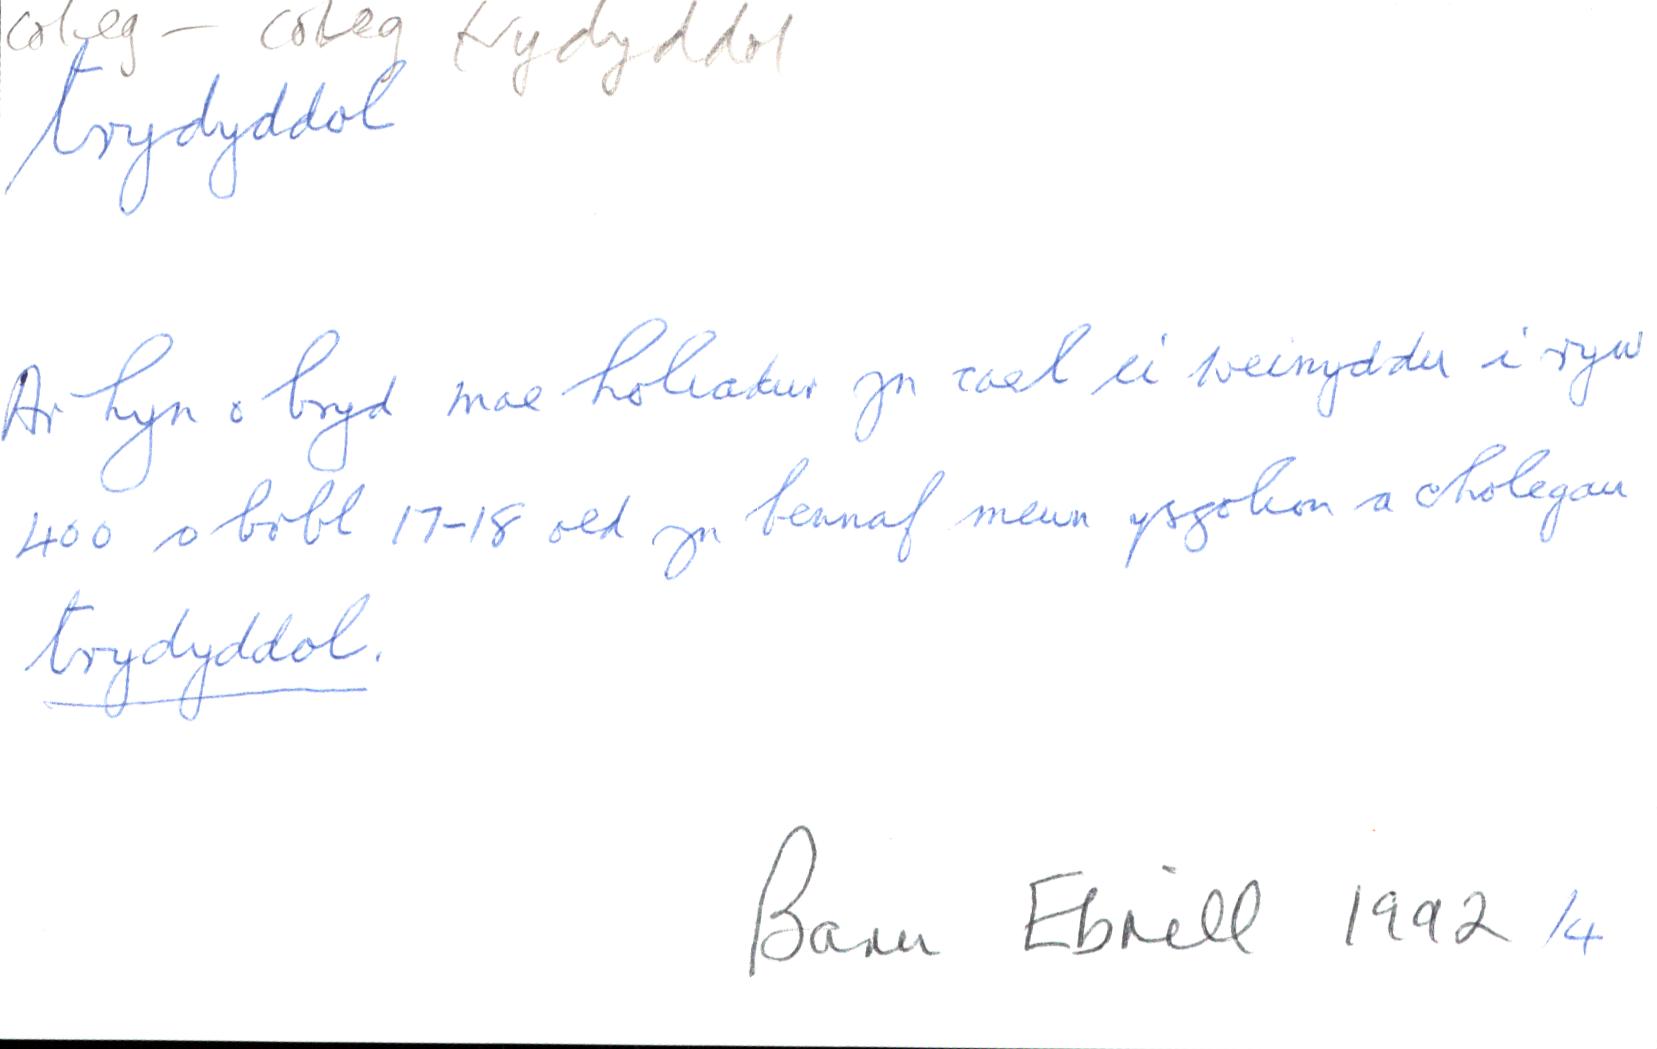 coleg — coleg trydyddol
trydyddol
Ar hyn o bryd mae holiadur yn cael ei weinyddu i ryw
400 o bobl 17-18 oed yn bennaf mewn ysgolion a cholegau
trydyddol.
Barn Ebrill 1992 /4